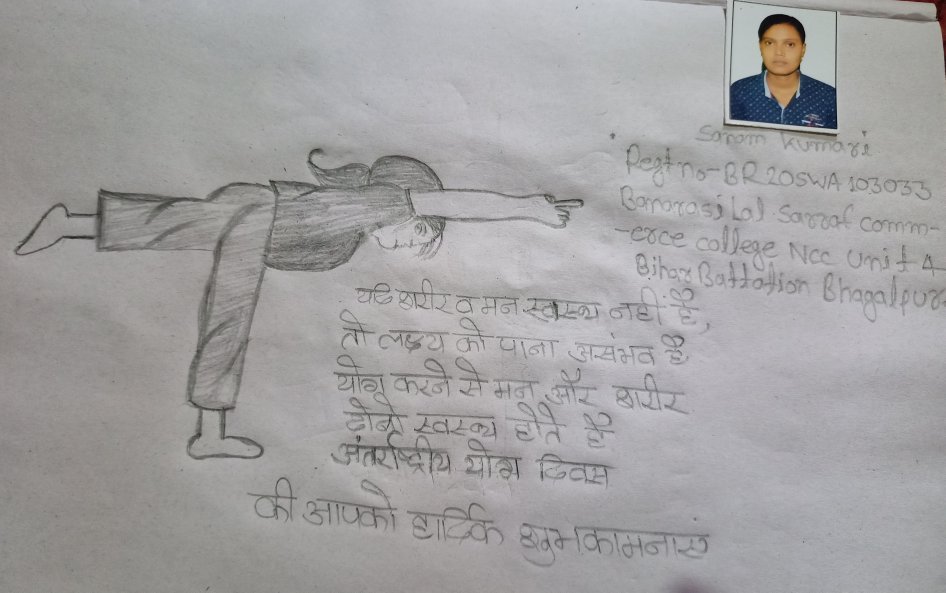 Sonam Kumari
Regt no-BR20SWA103033
Banarasi Lal Sarraf comm-
-erce college Ncc Unit 4
Bihar Battalion Bhagalpur
यदि शरीर व मन स्वस्थ नहीं है,
तो लक्ष्य को पाना असंभव है
योग करने से मन और शरीर
दोनो स्वस्थ होते है
अंतर्राष्ट्रीय योग दिवस
की आपको हार्दिक शुभकामनाएँ